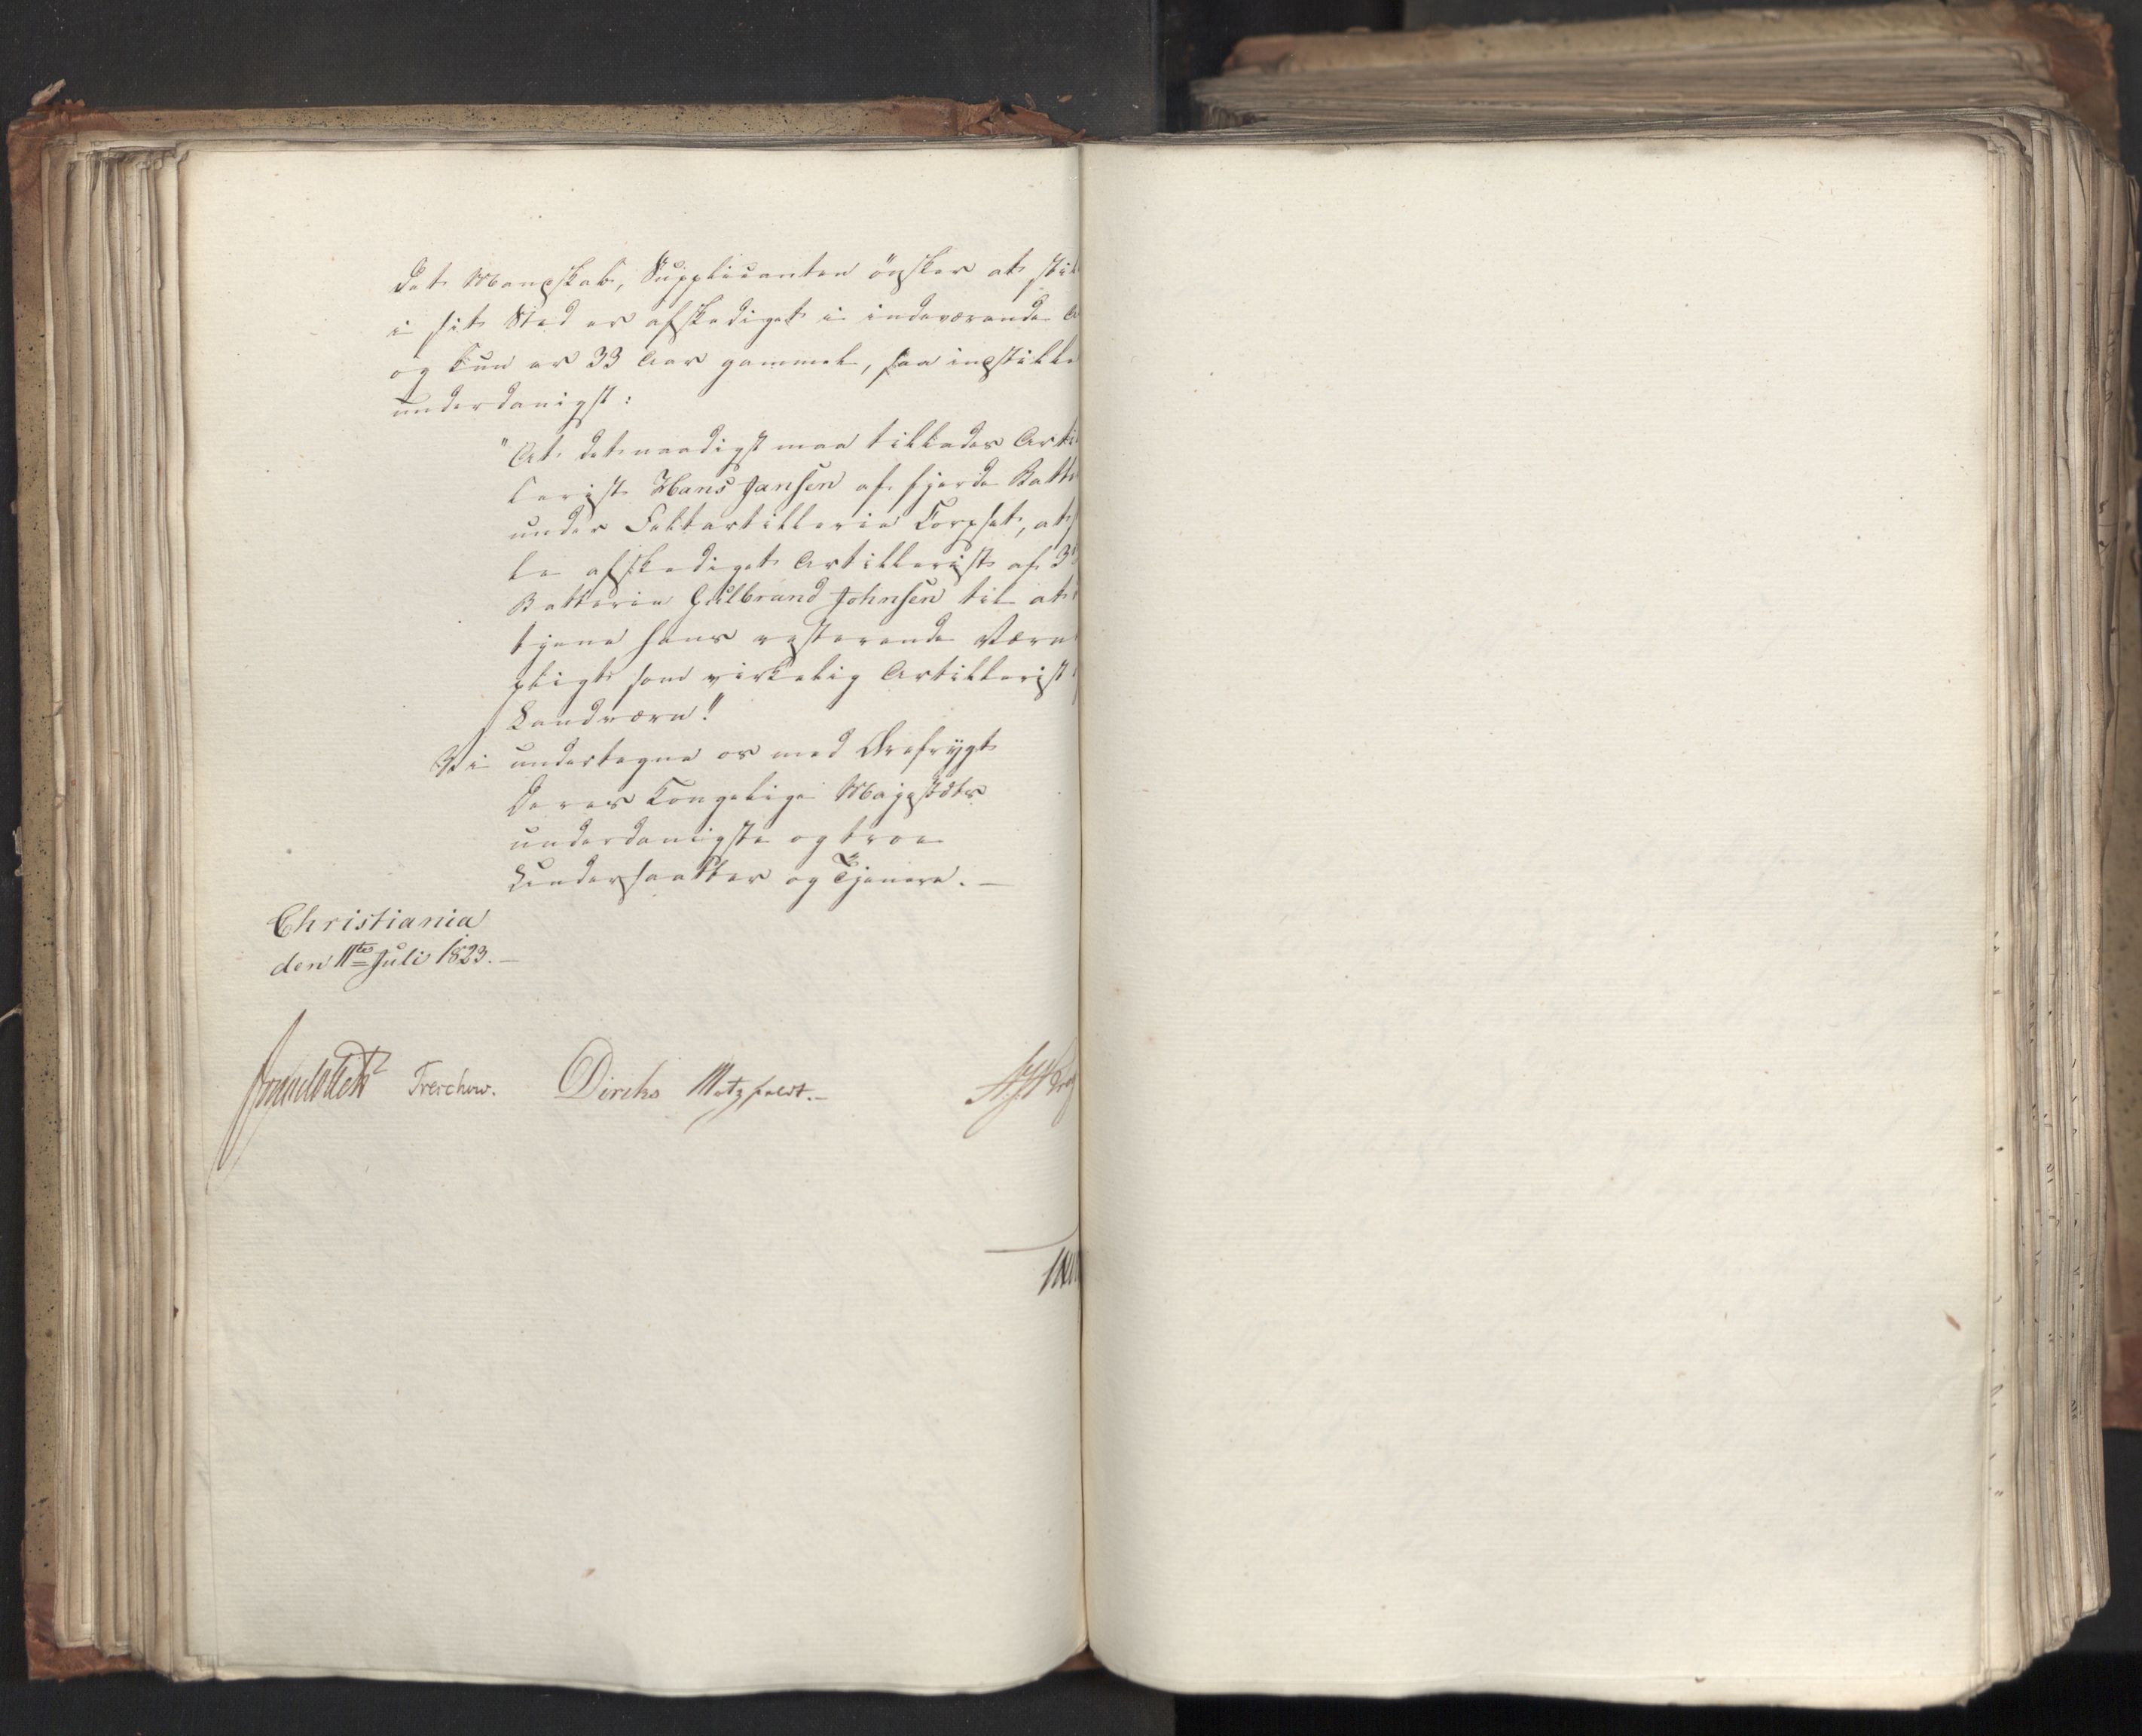 det Mandskab, Supplicanten ønsker at stil
i sit Sted er afskediget i indeværende A
og kun er 33 Aar gammel, saa indstilles
underdanigst:
"At det naadigst maa tillades Artil
lerist Hans Jansen af fjerde Batte
under Feltartillerie Corpset, at s
le afskediget Artillerist af 3d
Batterie Gulbrand Johnsen til at
tjene hans resterende Værne
pligt som virkelig Artillerist
Landværn."
Vi undertegne os med Ærefrygt
Deres Kongelige Majestæts
underdanigste og troe
Undersaatter og Tjenere. —
Christiania
den 11te Juli 1823. —
Treschow. Diriks Motzfeldt. —